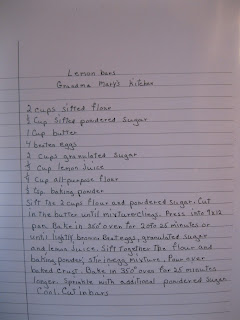 Lemon bars
Grandma Mary's Kitchen
2 cups sifted flour
½ Cup Sifted powdered sugar
1 Cup butter
4 beaten eggs
2 cups granulated sugar
Cup Lemon Juice
Cup all-purpose flour
Cup baking powder
Sift the 2 cups flour and powdered sugar. Cut
in the butter until mixture clings. Press into 9x13
pan. Bake in 350° oven for 20 to 25 minutes or
until lightly brown. Beat eggs, granulated sugar
and lemon Juice. Sift together the flour and
baking powder, stir in egg mixture. Pour over
baked crust. Bake in 350° oven for 25 minutes
longer. Sprinkle with additional powdered sugar.
Cool. Cut in bars.